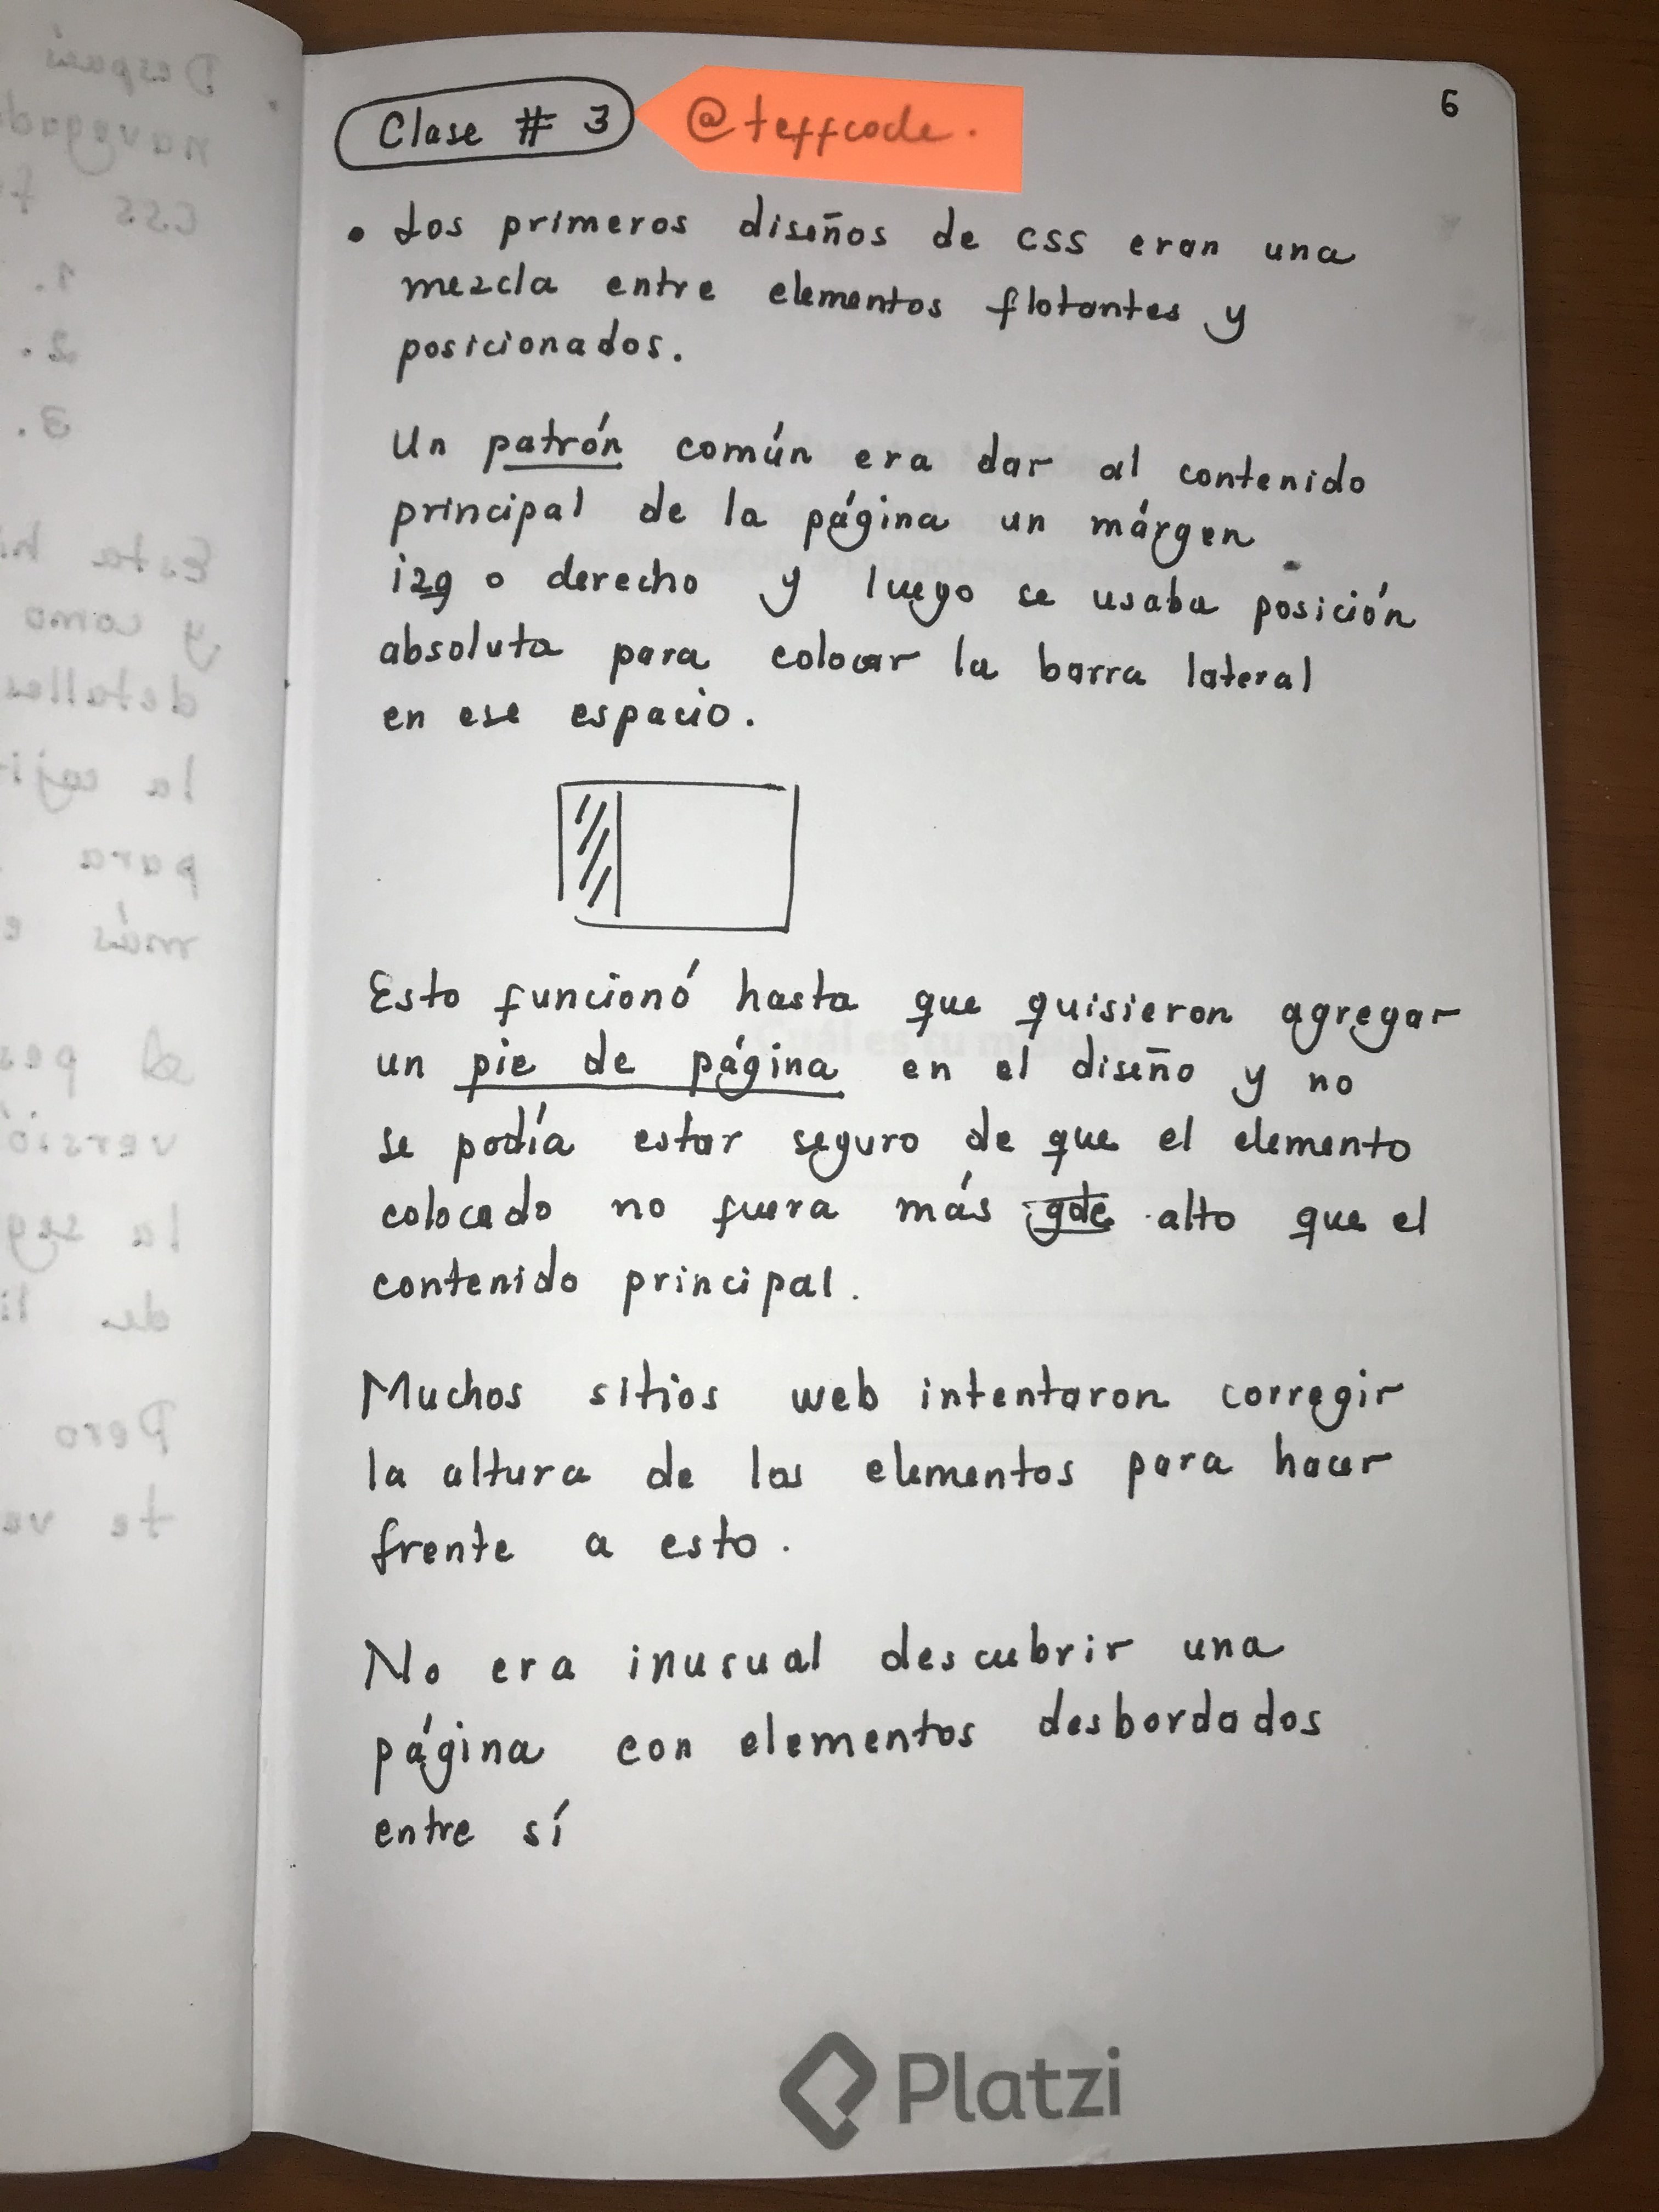 Clase # 3
@teffcode.
6
• Los primeros diseños de css eran una
mezcla entre elementos flotantes y
posicionados.
Un patrón común era dar al contenido
principal de la página un márgen
izq o derecho y luego se usaba posición
absoluta para colocar la barra lateral
en ese espacio.
Esto funcionó hasta que quisieron agregar
un pie de página en el diseño y no
se podía estar seguro de que el elemento
colocado no fuera más gde alto que el
contenido principal.
Muchos sitios web intentaron corregir
la altura de los elementos para hacer
frente a esto.
No era inusual descubrir una
página con elementos desbordados
entre sí
Platzi